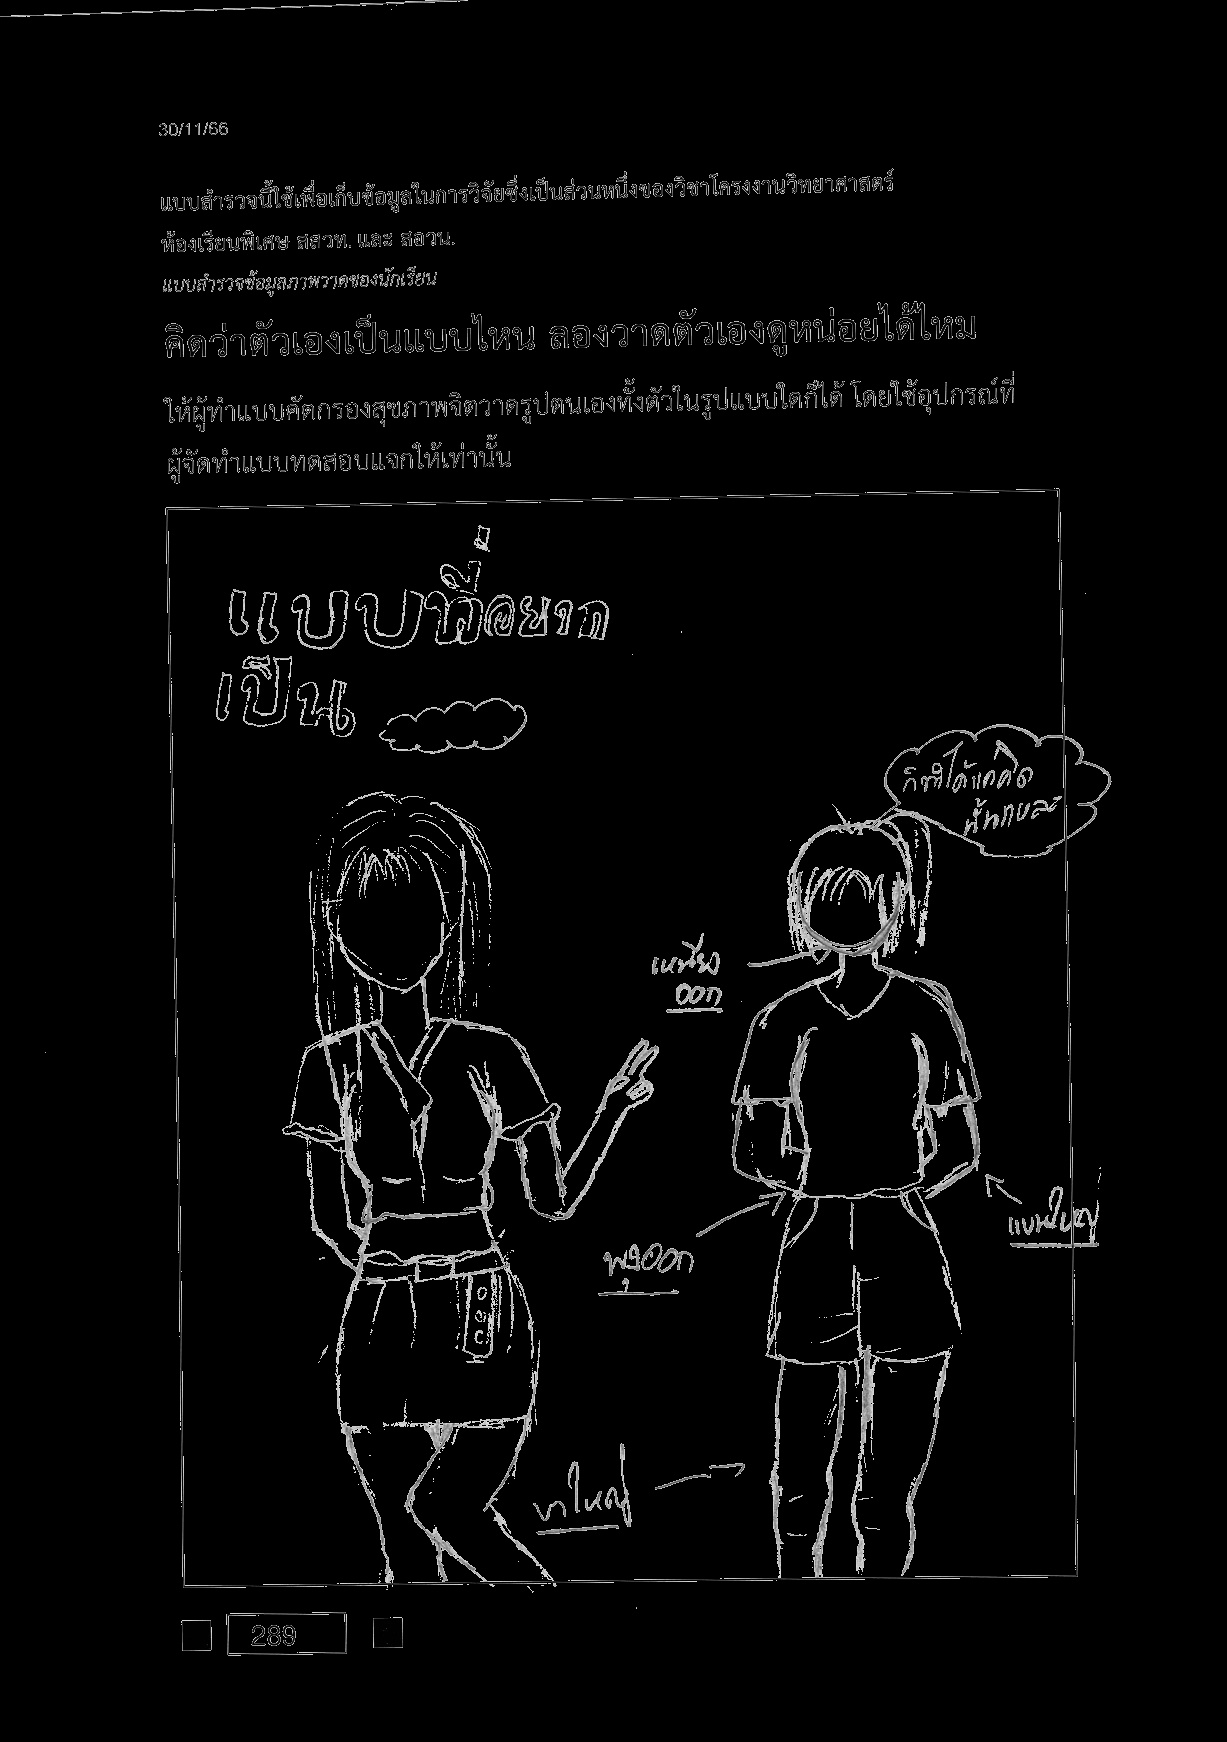 30/11/66
แบบสำรวจนี้ใช้เพื่อเก็บข้อมูลในการวิจัยซึ่งเป็นส่วนหนึ่งของวิชาโครงงานวิทยาศาสตร์
ห้องเรียนพิเศษ สสวท. และ สอวน.
แบบสำรวจข้อมูลภาพวาดของนักเรียน
คิดว่าตัวเองเป็นแบบไหน ลองวาดตัวเองดูหน่อยได้ไหม
ให้ผู้ทำแบบคัดกรองสุขภาพจิตวาดรูปตนเองทั้งตัวในรูปแบบใดก็ได้ โดยใช้อุปกรณ์ที่
ผู้จัดทำแบบทดสอบแจกให้เท่านั้น
แบบที่อยาก
เป็น
ก็ทำได้แค่คิด
เหนียง
ออก
แขนใหญ่
พุงออก
ขาใหญ่
289